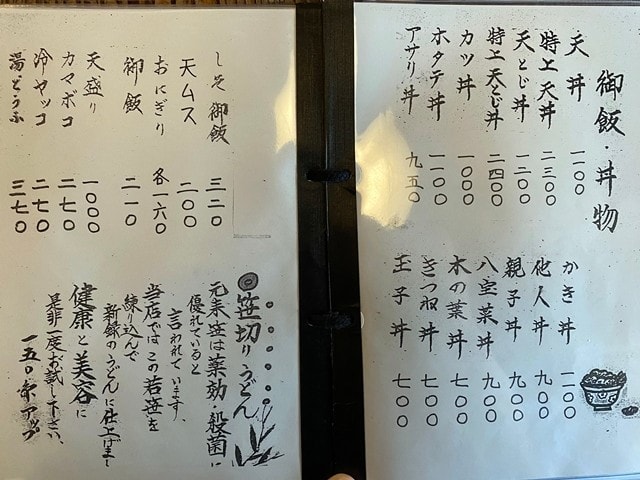 御飯・丼物
天丼 一一〇〇
特上天丼 二三〇〇
天とじ丼 一二〇〇
特上天とじ丼 二四〇〇
カツ丼 一〇〇〇
ホタテ丼 一一〇〇
アサリ丼 九五〇
かき丼 一一〇〇
他人丼 九〇〇
親子丼 九〇〇
八宝菜丼 九〇〇
木の葉丼 七〇〇
きつね丼 七〇〇
玉子丼 七〇〇
しそ御飯 三二〇
天ムス 二〇〇
おにぎり 各一六〇
御飯 二一〇
天盛り 一〇〇〇
カマボコ 二七〇
冷ヤッコ 二七〇
湯どうふ 三七〇
笹切りうどん
元来笹は薬効・殺菌に
優れていると
言われています、
当店ではこの若笹を
練り込んで
新緑のうどんに仕上げまし
健康と美容に
是非一度お試し下さい、
一五〇円アップ